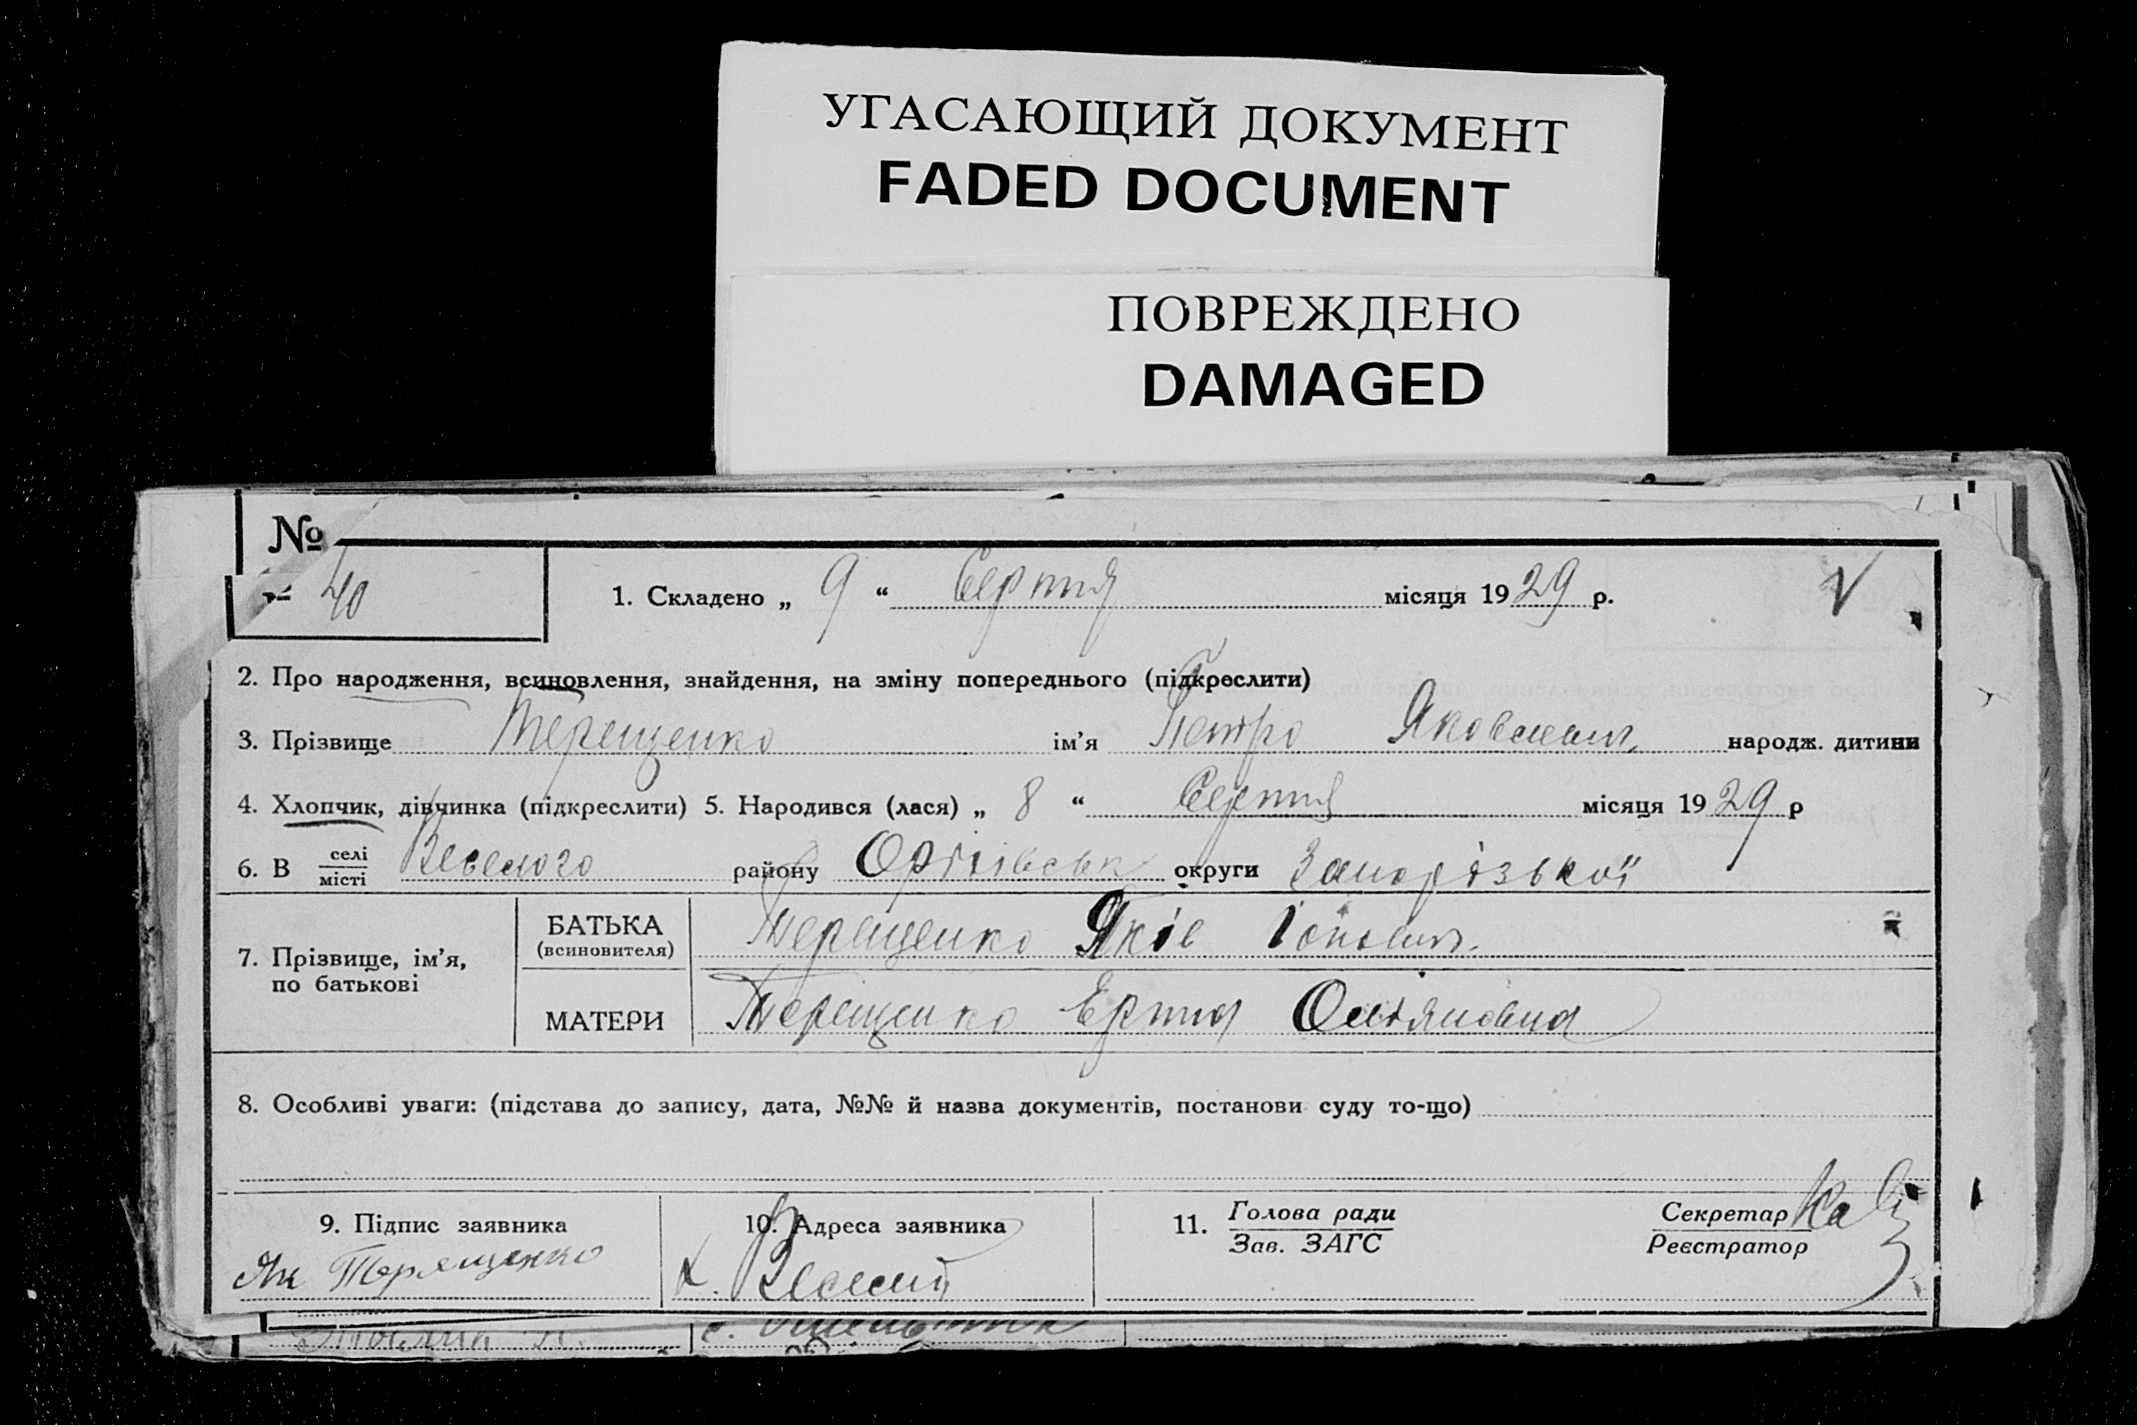 УГАСАЮЩИЙ ДОКУМЕНТ
FADED DOCUMENT
ПОВРЕЖДЕНО
DAMAGED
№
40
1. Складено „ 9 “ Серпня місяця 1929 р.
2. Про народження, всиновлення, знайдення, на зміну попереднього (підкреслити)
3. Прізвище Терещенко ім’я Петро Яковлевич народж. дитини
4. Хлопчик, дівчинка (підкреслити) 5. Народився (лася) „ 8 “ Серпня місяця 1929 р
6. В селі місті Веселого району Оріхівськ округи Запорізької
7. Прізвище, ім’я, по батькові
БАТЬКА (всиновителя) Терещенко Яків
МАТЕРИ Терещенко
8. Особливі уваги: (підстава до запису, дата, №№ й назва документів, постанови суду то-що)
9. Підпис заявника
Як Терещенко
10. Адреса заявника
х. Веселий
11. Голова ради
Зав. ЗАГС
Секретар
Реєстратор